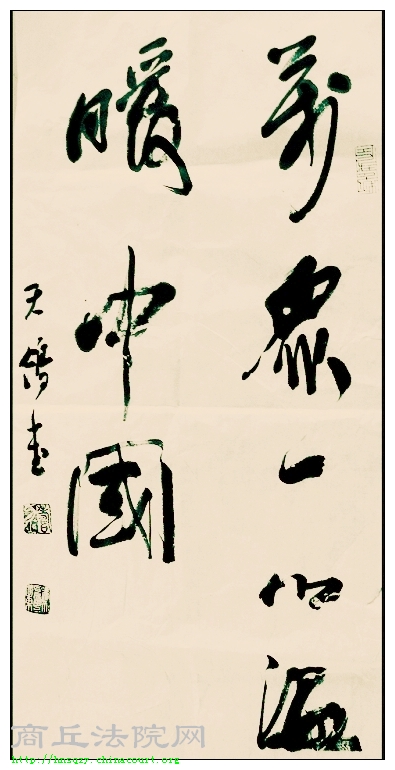 萬眾一心溫
暖中國
天 书
商丘法院网
http://hnsqzy.chinacourt.org